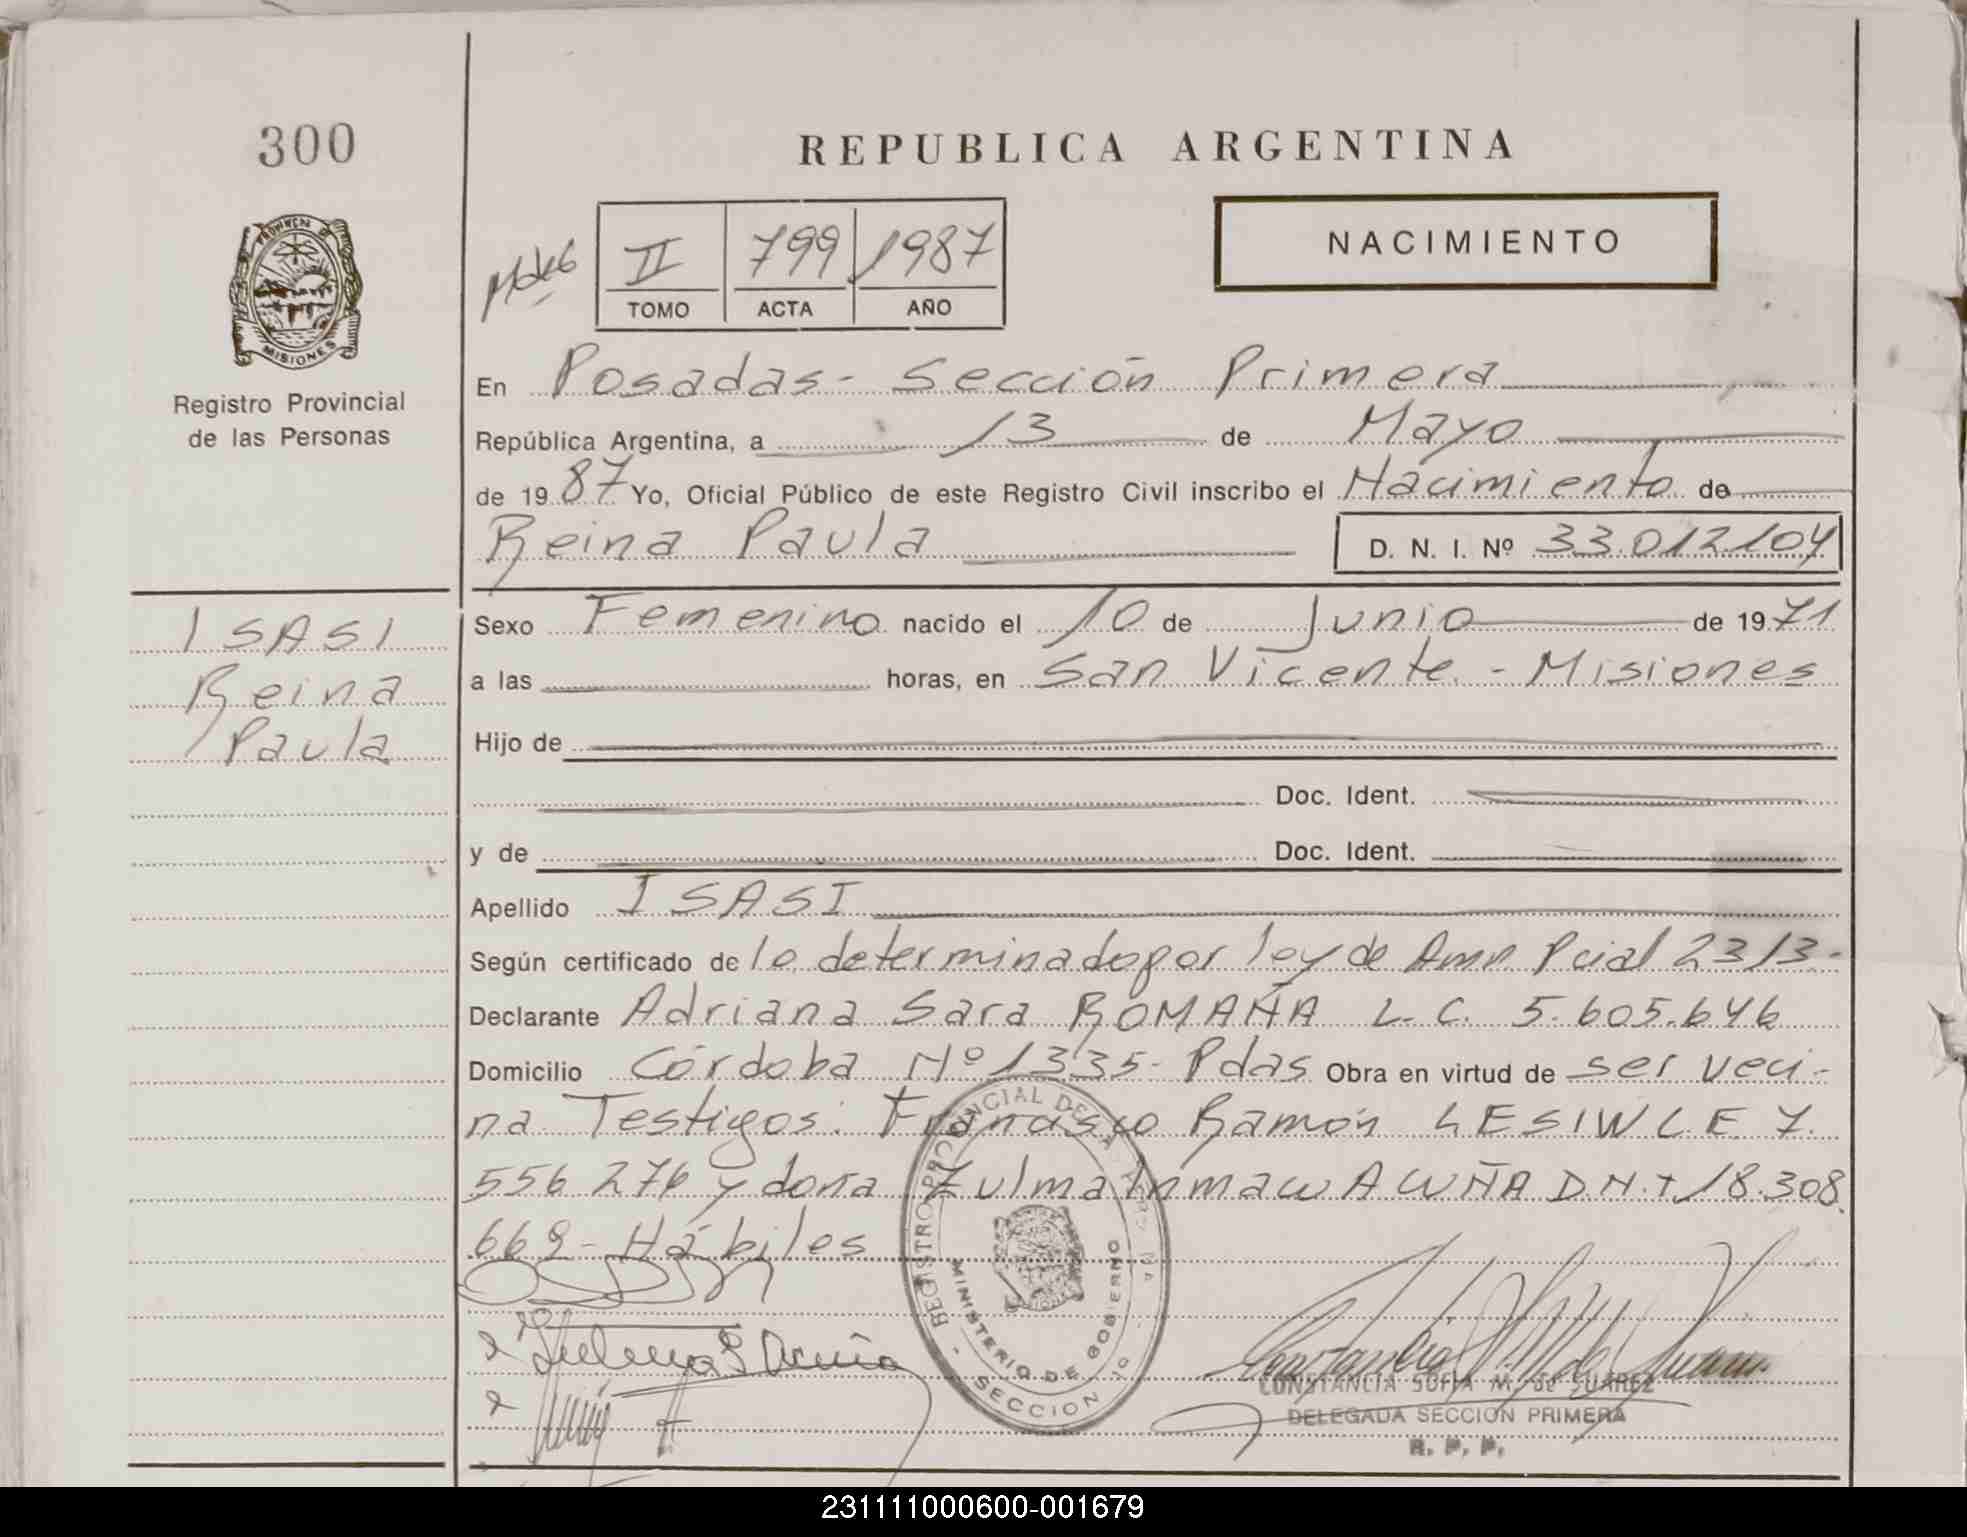 300
REPUBLICA ARGENTINA
PROVINCIA DE
MISIONES
Registro Provincial
de las Personas
II 799 1987
TOMO ACTA AÑO
NACIMIENTO
En Posadas - Sección Primera
República Argentina, a 13 de Mayo
de 1987 Yo, Oficial Público de este Registro Civil inscribo el Nacimiento de
Reina Paula D. N. I. Nº 33.012.104
ISASI
Reina
Paula
Sexo Femenino nacido el 10 de Junio de 1971
a las horas, en San Vicente. - Misiones
Hijo de
Doc. Ident.
y de Doc. Ident.
Apellido ISASI
Según certificado de lo determinado por ley de Amn. Pcial 2313-
Declarante Adriana Sara ROMAÑA L. C. 5.605.646
Domicilio Córdoba Nº 1335- Pdas Obra en virtud de ser veci-
na Testigos: Francisco Ramón LESIW L E 7.
556 276 y doña Zulma Inmacu ACUÑA D.N.I 18.308.
669 - Hábiles
REGISTRO PROVINCIAL DE LAS
MINISTERIO DE GOBIERNO
- SECCION 1a -
CONSTANCIA SOFIA M. de SUAREZ
DELEGADA SECCION PRIMERA
R. P. P.
231111000600-001679